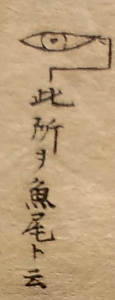 此所ヲ魚尾ト云